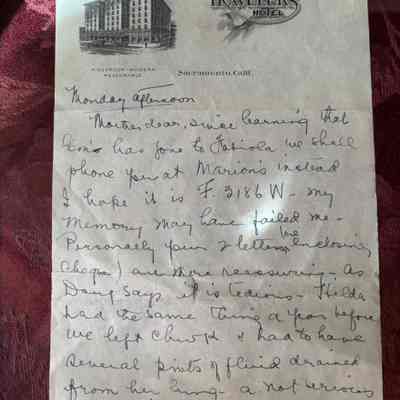 TRAVELERS
HOTEL
FIREPROOF - MODERN
REASONABLE
Sacramento, Calif.
Monday afternoon
Mother dear, since learning that
has gone to Fabiola we shall
phone you at Marion's instead
I hope it is F. 3186 W - my
memory may have failed me -
Personally your 2 letters (one enclosing
cheque) are more reassuring. As
says it is tedious. Hilda
had the same thing a year before
we left & had to have
several pints of fluid drained
from her lung - a not serious